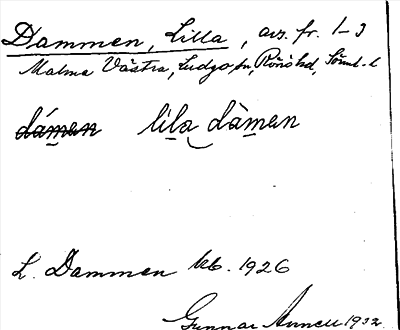 Dammen, Lilla, avs. fr. 1-3
Malma Västra, Ludgo sn, Rönö hd, Söml. l
dámen lila dàmen
L. Dammen kb. 1926
Gunnar 1932